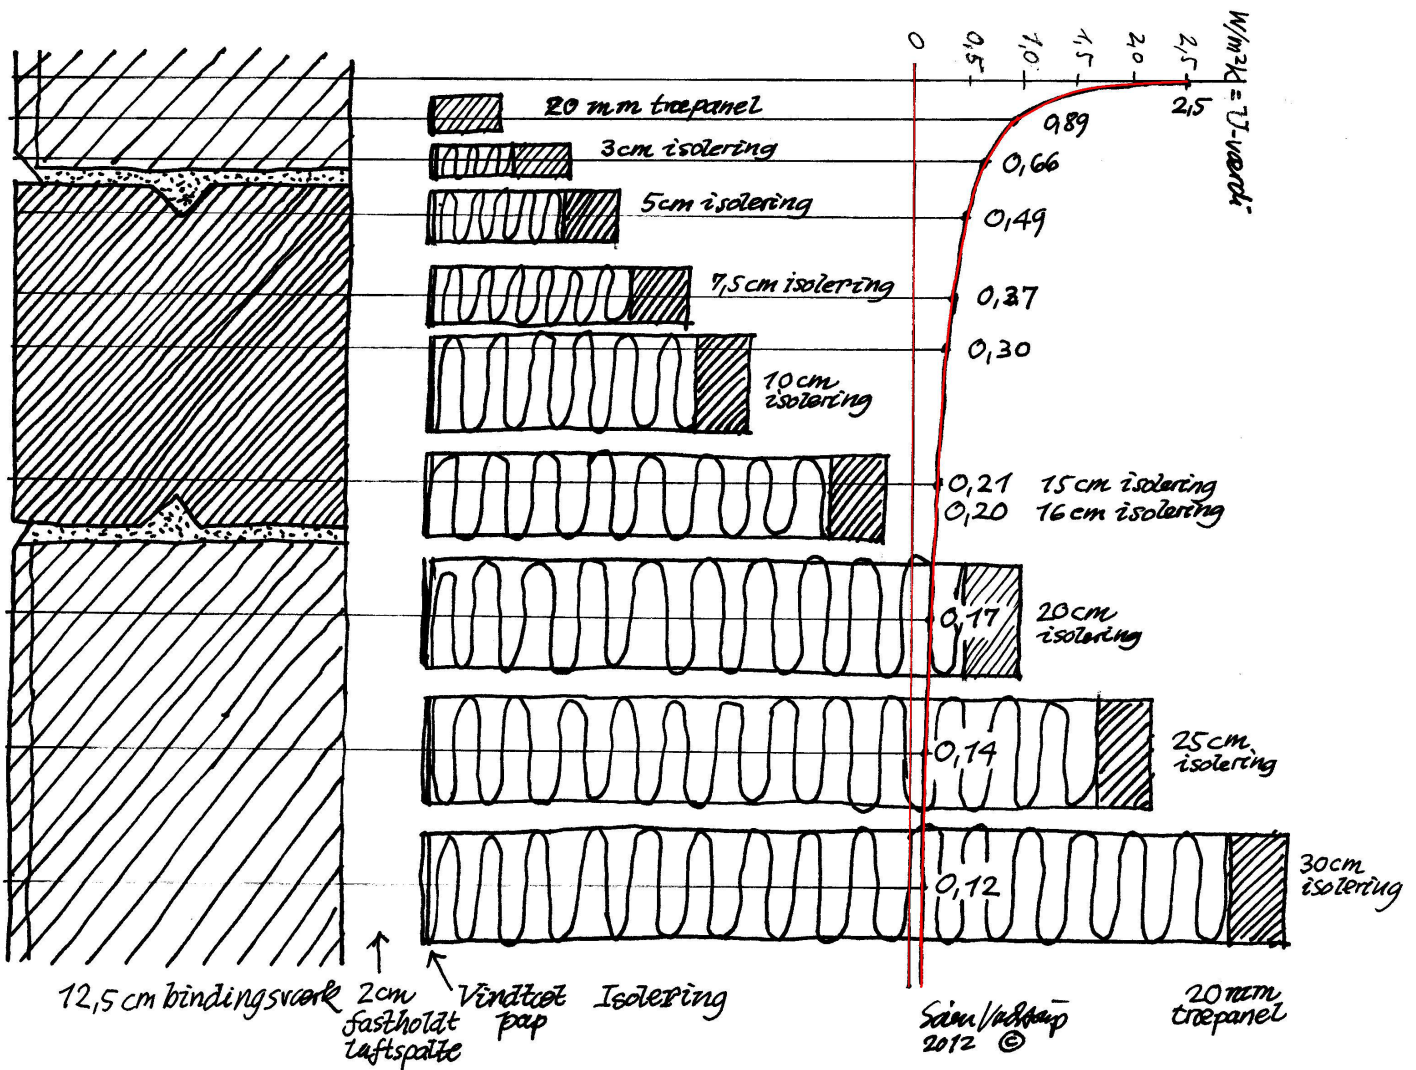 0
0,5
1,0
1,5
2,0
2,5
W/m²k = U-værdi
2,5
20 mm træpanel
0,89
3cm isolering
0,66
5cm isolering
0,49
7,5cm isolering
0,37
0,30
10cm
isolering
0,21 15cm isolering
0,20 16cm isolering
0,17
20cm
isolering
0,14
25cm
isolering
0,12
30cm
isolering
12,5 cm bindingsværk
2cm
fastholdt
luftspalte
Vindtæt
pap
Isolering
2012 ©
20 mm
træpanel